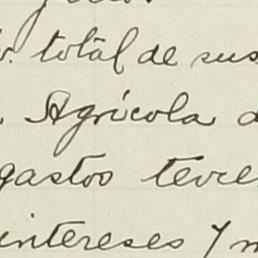 total de sus
Agrícola
gastos
intereses y